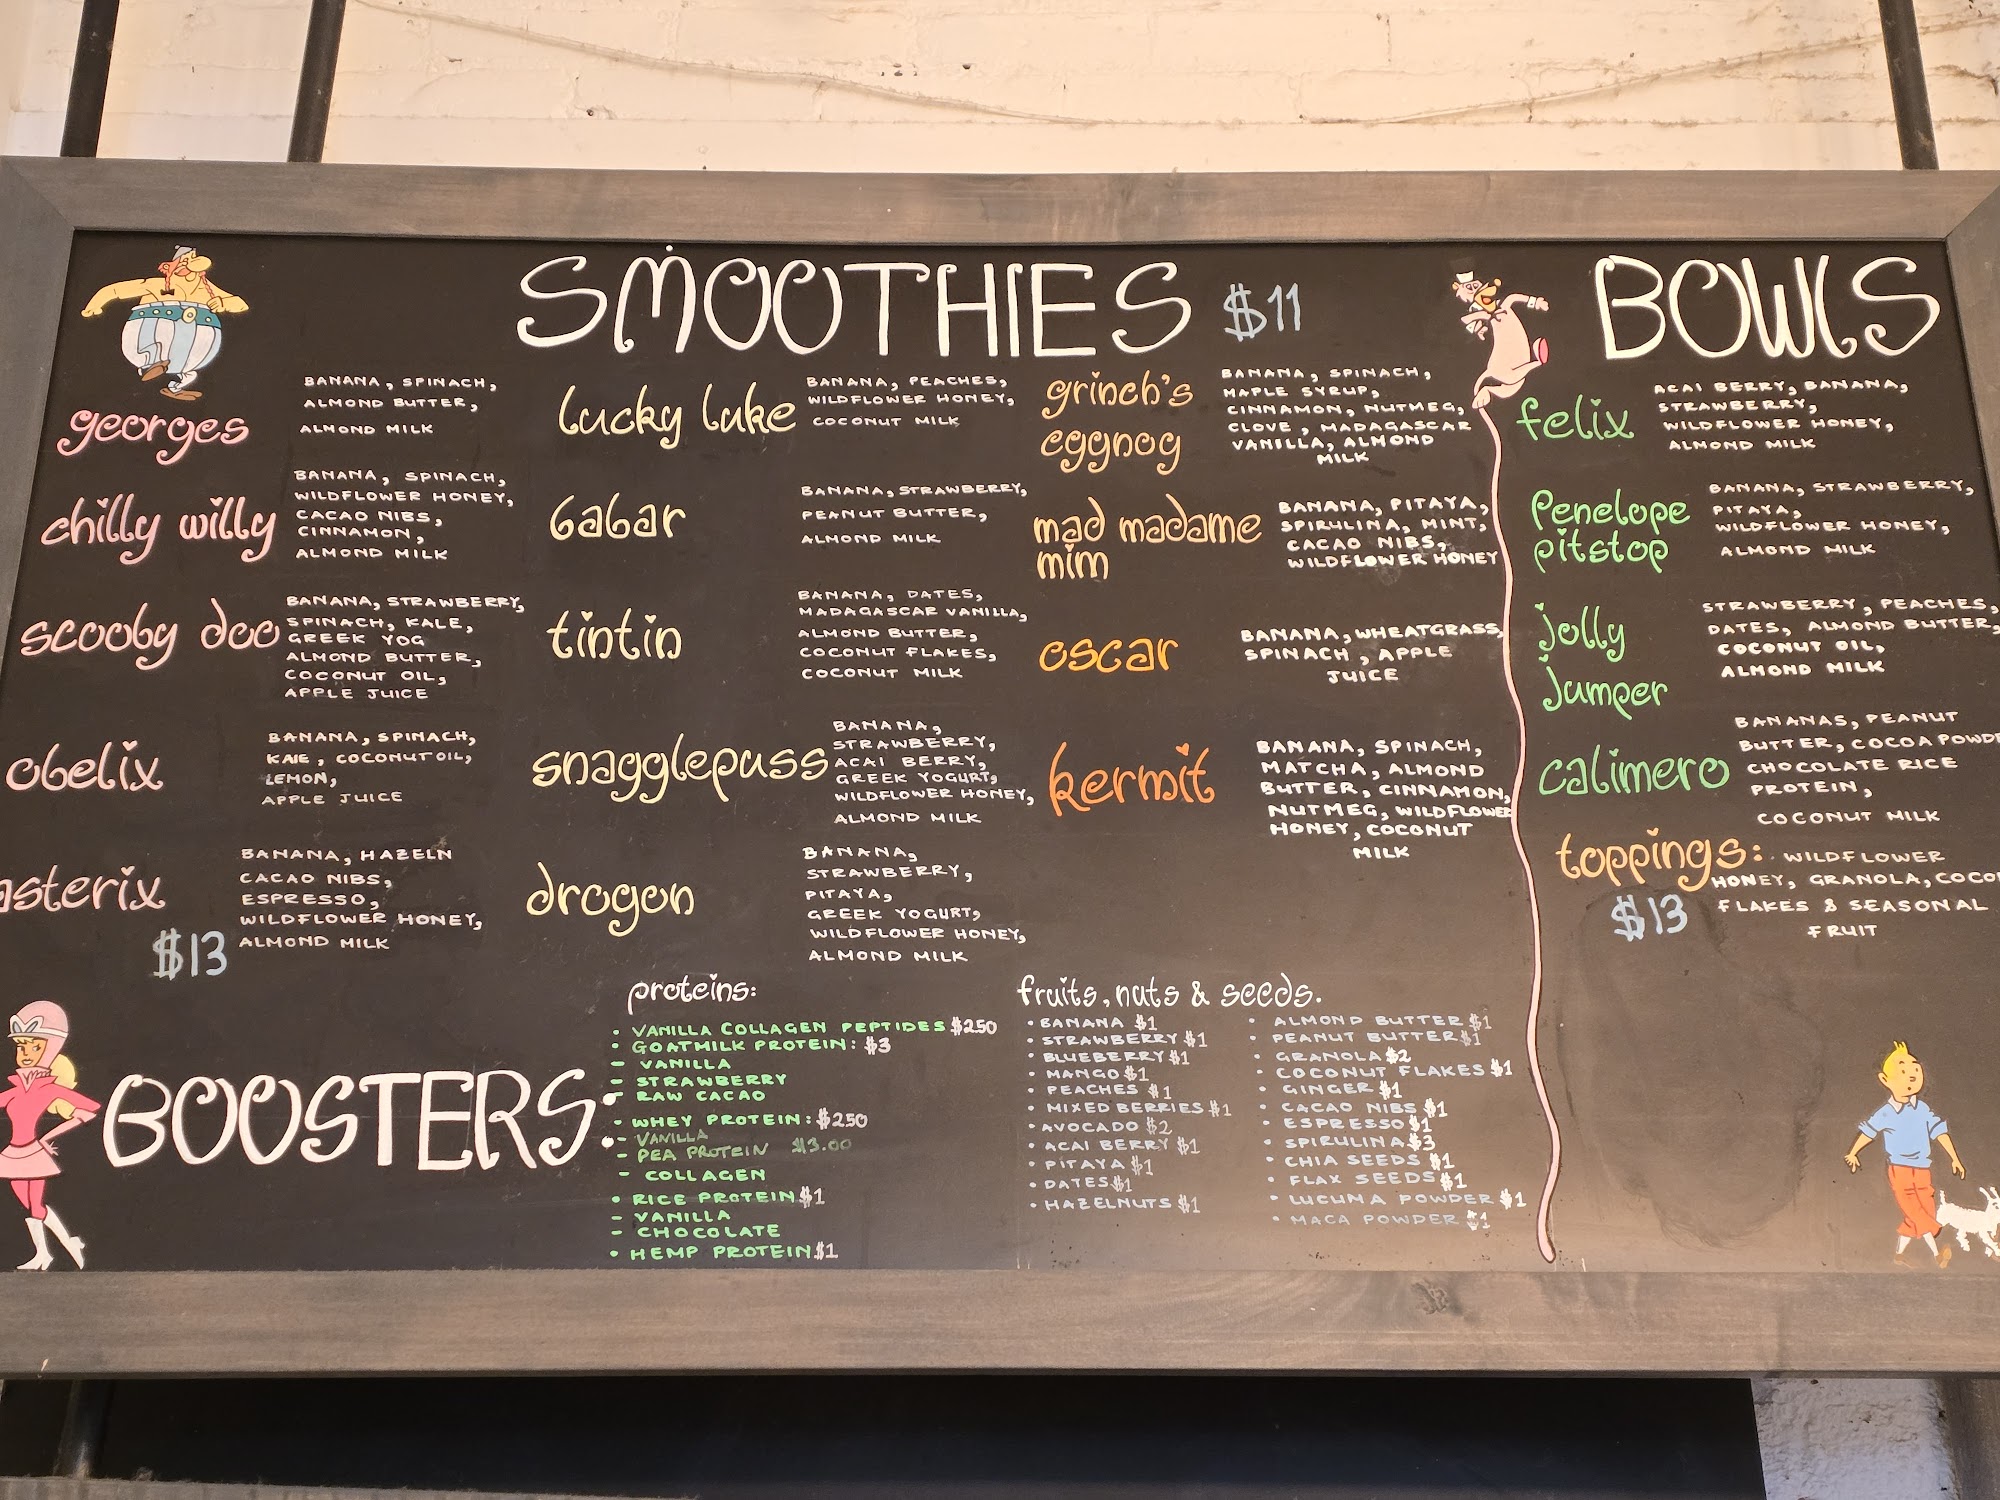 SMOOTHIES $11
georges
BANANA, SPINACH,
ALMOND BUTTER,
ALMOND MILK
chilly willy
BANANA, SPINACH,
WILDFLOWER HONEY,
CACAO NIBS,
CINNAMON,
ALMOND MILK
scooby doo
BANANA, STRAWBERRY,
SPINACH, KALE,
GREEK YOG
ALMOND BUTTER,
COCONUT OIL,
APPLE JUICE
obelix
BANANA, SPINACH,
KALE, COCONUT OIL,
LEMON,
APPLE JUICE
asterix
$13
BANANA, HAZELN
CACAO NIBS,
ESPRESSO,
WILDFLOWER HONEY,
ALMOND MILK
lucky luke
BANANA, PEACHES,
WILDFLOWER HONEY,
COCONUT MILK
babar
BANANA, STRAWBERRY,
PEANUT BUTTER,
ALMOND MILK
tintin
BANANA, DATES,
MADAGASCAR VANILLA,
ALMOND BUTTER,
COCONUT FLAKES,
COCONUT MILK
snagglepuss
BANANA,
STRAWBERRY,
ACAI BERRY,
GREEK YOGURT,
WILDFLOWER HONEY,
ALMOND MILK
drogon
BANANA,
STRAWBERRY,
PITAYA,
GREEK YOGURT,
WILDFLOWER HONEY,
ALMOND MILK
grinch's
eggnog
BANANA, SPINACH,
MAPLE SYRUP,
CINNAMON, NUTMEG,
CLOVE, MADAGASCAR
VANILLA, ALMOND
MILK
mad madame
mim
BANANA, PITAYA,
SPIRULINA, MINT,
CACAO NIBS,
WILDFLOWER HONEY
oscar
BANANA, WHEATGRASS,
SPINACH, APPLE
JUICE
kermit
BANANA, SPINACH,
MATCHA, ALMOND
BUTTER, CINNAMON,
NUTMEG, WILDFLOWER
HONEY, COCONUT
MILK
BOWLS
felix
ACAI BERRY, BANANA,
STRAWBERRY,
WILDFLOWER HONEY,
ALMOND MILK
Penelope
pitstop
BANANA, STRAWBERRY,
PITAYA,
WILDFLOWER HONEY,
ALMOND MILK
jolly
jumper
STRAWBERRY, PEACHES,
DATES, ALMOND BUTTER,
COCONUT OIL,
ALMOND MILK
calimero
BANANAS, PEANUT
BUTTER, COCOA POWDE
CHOCOLATE RICE
PROTEIN,
COCONUT MILK
toppings: WILDFLOWER
HONEY, GRANOLA, COCO
$13 FLAKES & SEASONAL
FRUIT
BOOSTERS:
proteins:
• VANILLA COLLAGEN PEPTIDES $2.50
• GOATMILK PROTEIN: $3
- VANILLA
- STRAWBERRY
- RAW CACAO
• WHEY PROTEIN: $2.50
- VANILLA
- PEA PROTEIN $3.00
- COLLAGEN
• RICE PROTEIN $1
- VANILLA
- CHOCOLATE
• HEMP PROTEIN $1
fruits, nuts & seeds.
• BANANA $1
• STRAWBERRY $1
• BLUEBERRY $1
• MANGO $1
• PEACHES $1
• MIXED BERRIES $1
• AVOCADO $2
• ACAI BERRY $1
• PITAYA $1
• DATES $1
• HAZELNUTS $1
• ALMOND BUTTER $1
• PEANUT BUTTER $1
• GRANOLA $2
• COCONUT FLAKES $1
• GINGER $1
• CACAO NIBS $1
• ESPRESSO $1
• SPIRULINA $3
• CHIA SEEDS $1
• FLAX SEEDS $1
• LUCUMA POWDER $1
• MACA POWDER $1